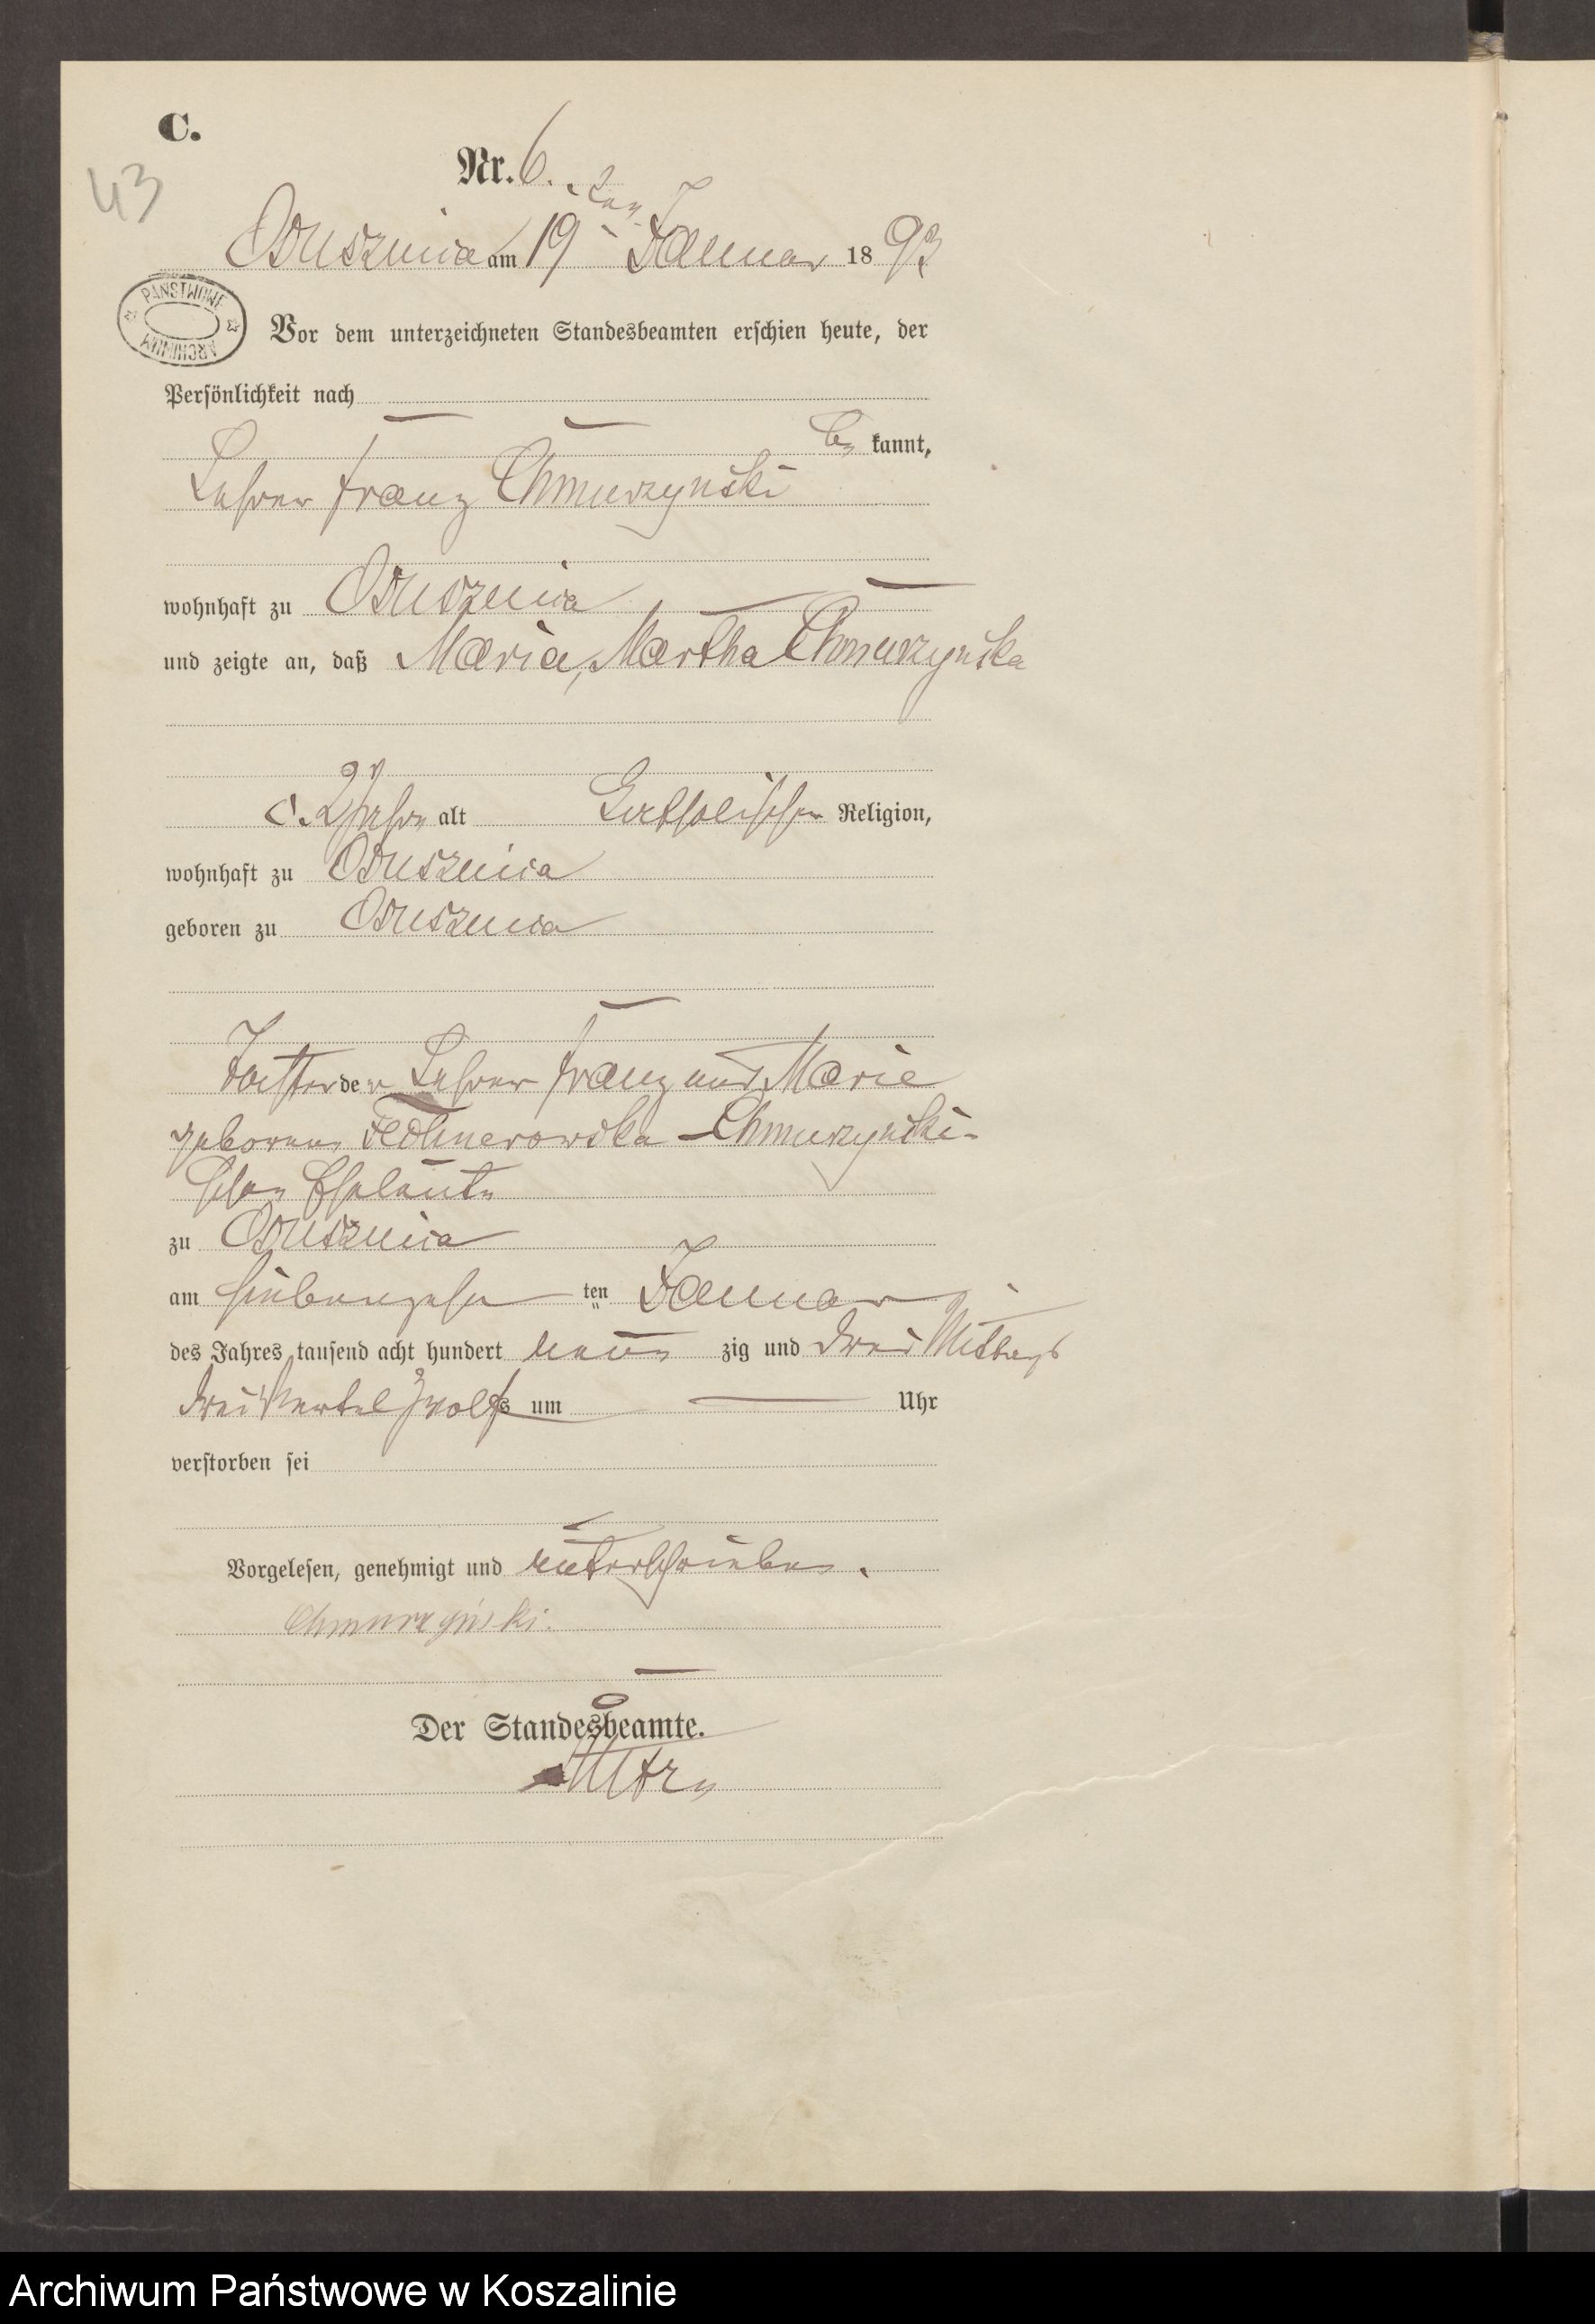 C.
43
Nr. 6.
Ossusznica am 19 ten Januar 18 93
PAŃSTWOWE ARCHIWUM
Vor dem unterzeichneten Standesbeamten erschien heute, der
Persönlichkeit nach
be kannt,
Lehrer Franz Chmurzynski
wohnhaft zu
und zeigte an, daß Maria, Martha Chmurzynska
alt Katholischer Religion,
wohnhaft zu
geboren zu
Tochter der Lehrer Franz und Marie
geborene Chmurzynski-
schen Eheleute
zu
am siebenzehn ten Januar
des Jahres tausend acht hundert neun zig und drei Mittags
drei Viertel Zwölf s um Uhr
verstorben sei
Vorgelesen, genehmigt und unterschrieben.
Chmurzyński.
Der Standesbeamte.
Archiwum Państwowe w Koszalinie